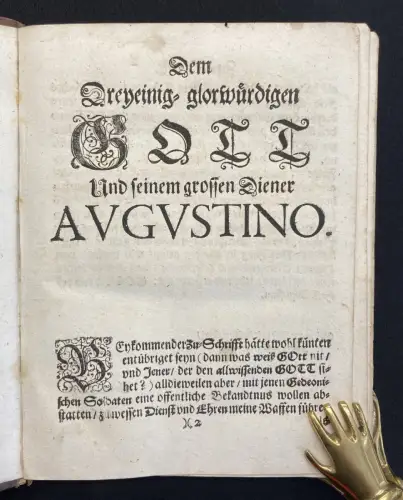 Dem
Dreyeinig- glorwürdigen
GOTT
Und seinem grossen Diener
AVGVSTINO.
BEykommender Zu-Schrifft hätte wohl künten
entübriget seyn (dann was weiß GOtt nit/
vnd Jener/ der den allwissenden GOTT si-
het?) alldieweilen aber/ mit jenen Gedeoni-
schen Soldaten eine offentliche Bekandtnus wollen ab-
statten/ zu wessen Dienst vnd Ehren meine Waffen führe/
)( 2